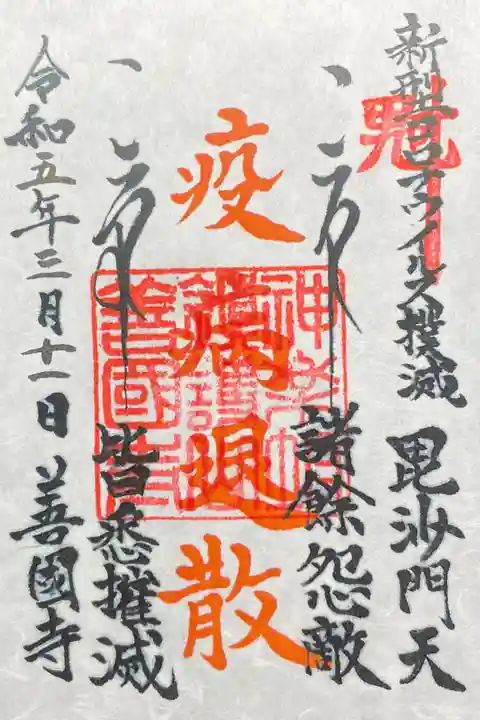 新型コロナウイルス撲滅 毘沙門天
諸餘怨敵
疫病退散
皆悉摧滅
令和五年三月十一日 善國寺